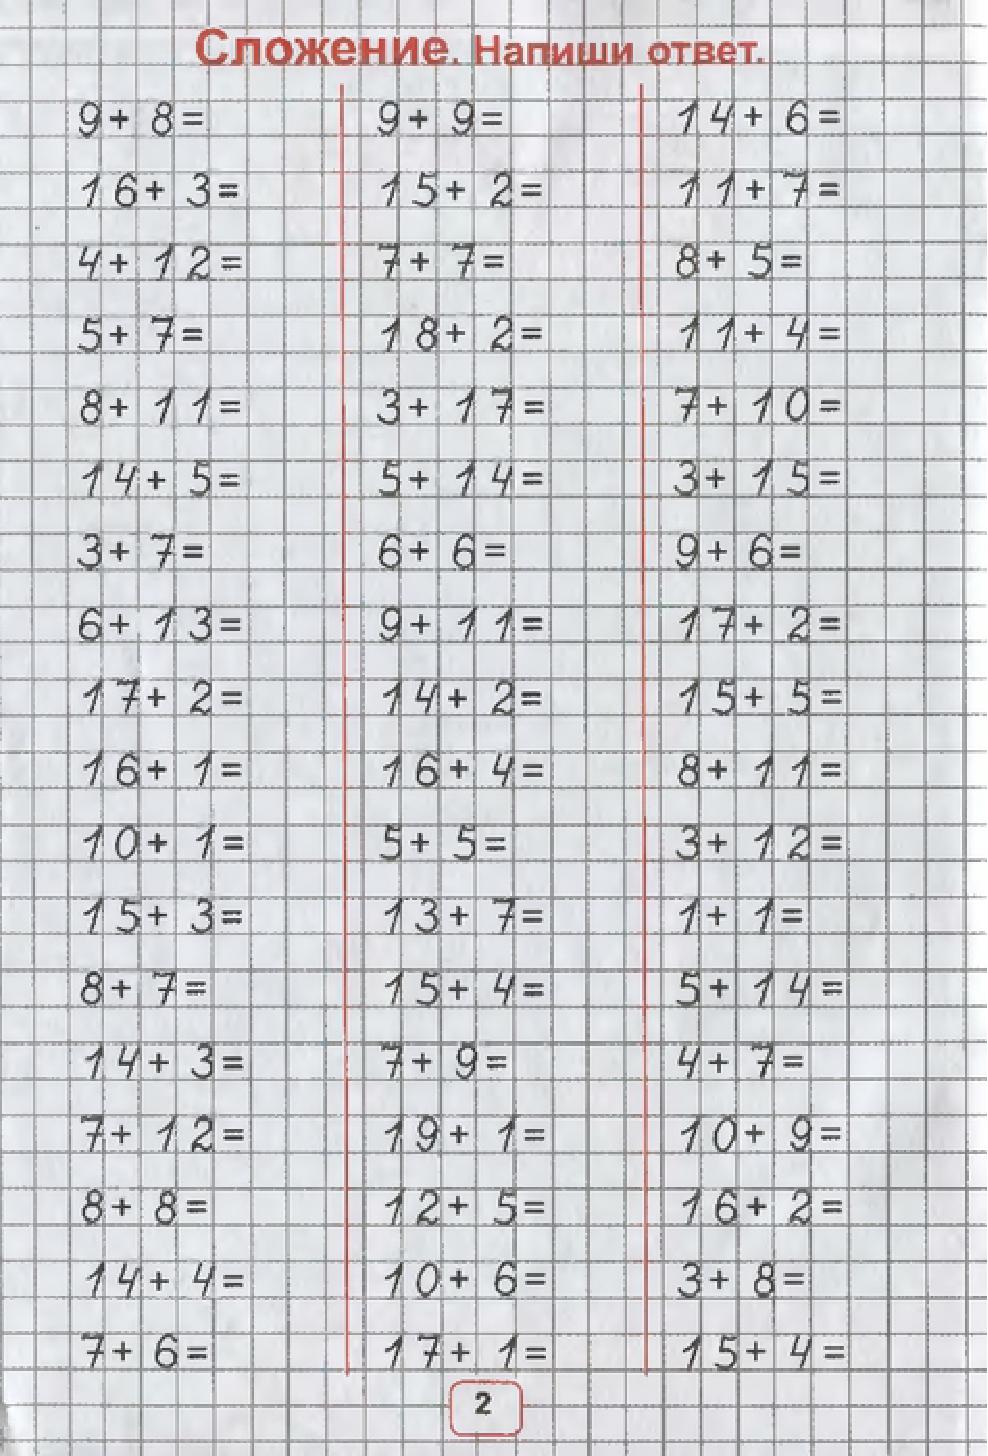 Сложение. Напиши ответ.
9 + 8 =
16 + 3 =
4 + 12 =
5 + 7 =
8 + 11 =
14 + 5 =
3 + 7 =
6 + 13 =
17 + 2 =
16 + 1 =
10 + 1 =
15 + 3 =
8 + 7 =
14 + 3 =
7 + 12 =
8 + 8 =
14 + 4 =
7 + 6 =
9 + 9 =
15 + 2 =
7 + 7 =
18 + 2 =
3 + 17 =
5 + 14 =
6 + 6 =
9 + 11 =
14 + 2 =
16 + 4 =
5 + 5 =
13 + 7 =
15 + 4 =
7 + 9 =
19 + 1 =
12 + 5 =
10 + 6 =
17 + 1 =
14 + 6 =
11 + 7 =
8 + 5 =
11 + 4 =
7 + 10 =
3 + 15 =
9 + 6 =
17 + 2 =
15 + 5 =
8 + 11 =
3 + 12 =
1 + 1 =
5 + 14 =
4 + 7 =
10 + 9 =
16 + 2 =
3 + 8 =
15 + 4 =
2